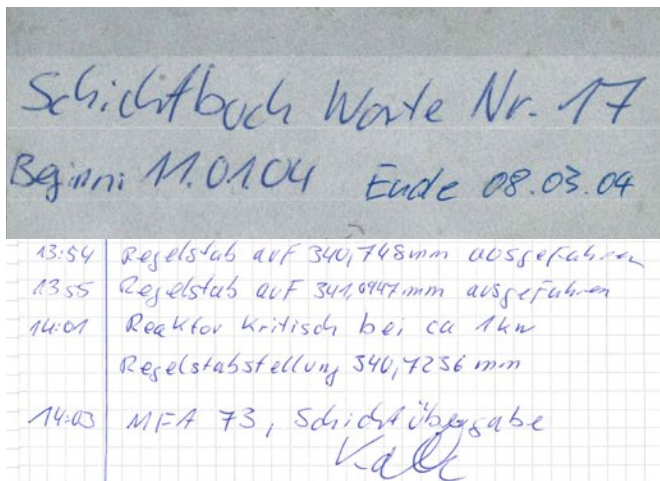 Schichtbuch Warte Nr. 17
Beginn: 11.01.04 Ende 08.03.04
13:54 Regelstab auf 340,748mm ausgefahren
13:55 Regelstab auf 341,0947mm ausgefahren
14:01 Reaktor kritisch bei ca 1kw
Regelstabstellung 340,7236 mm
14:03 MFA 73, Schichtübergabe